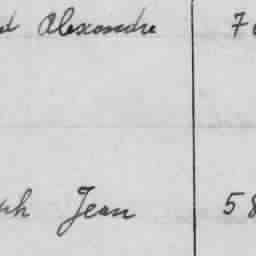 Alexandre 7
Jean 58